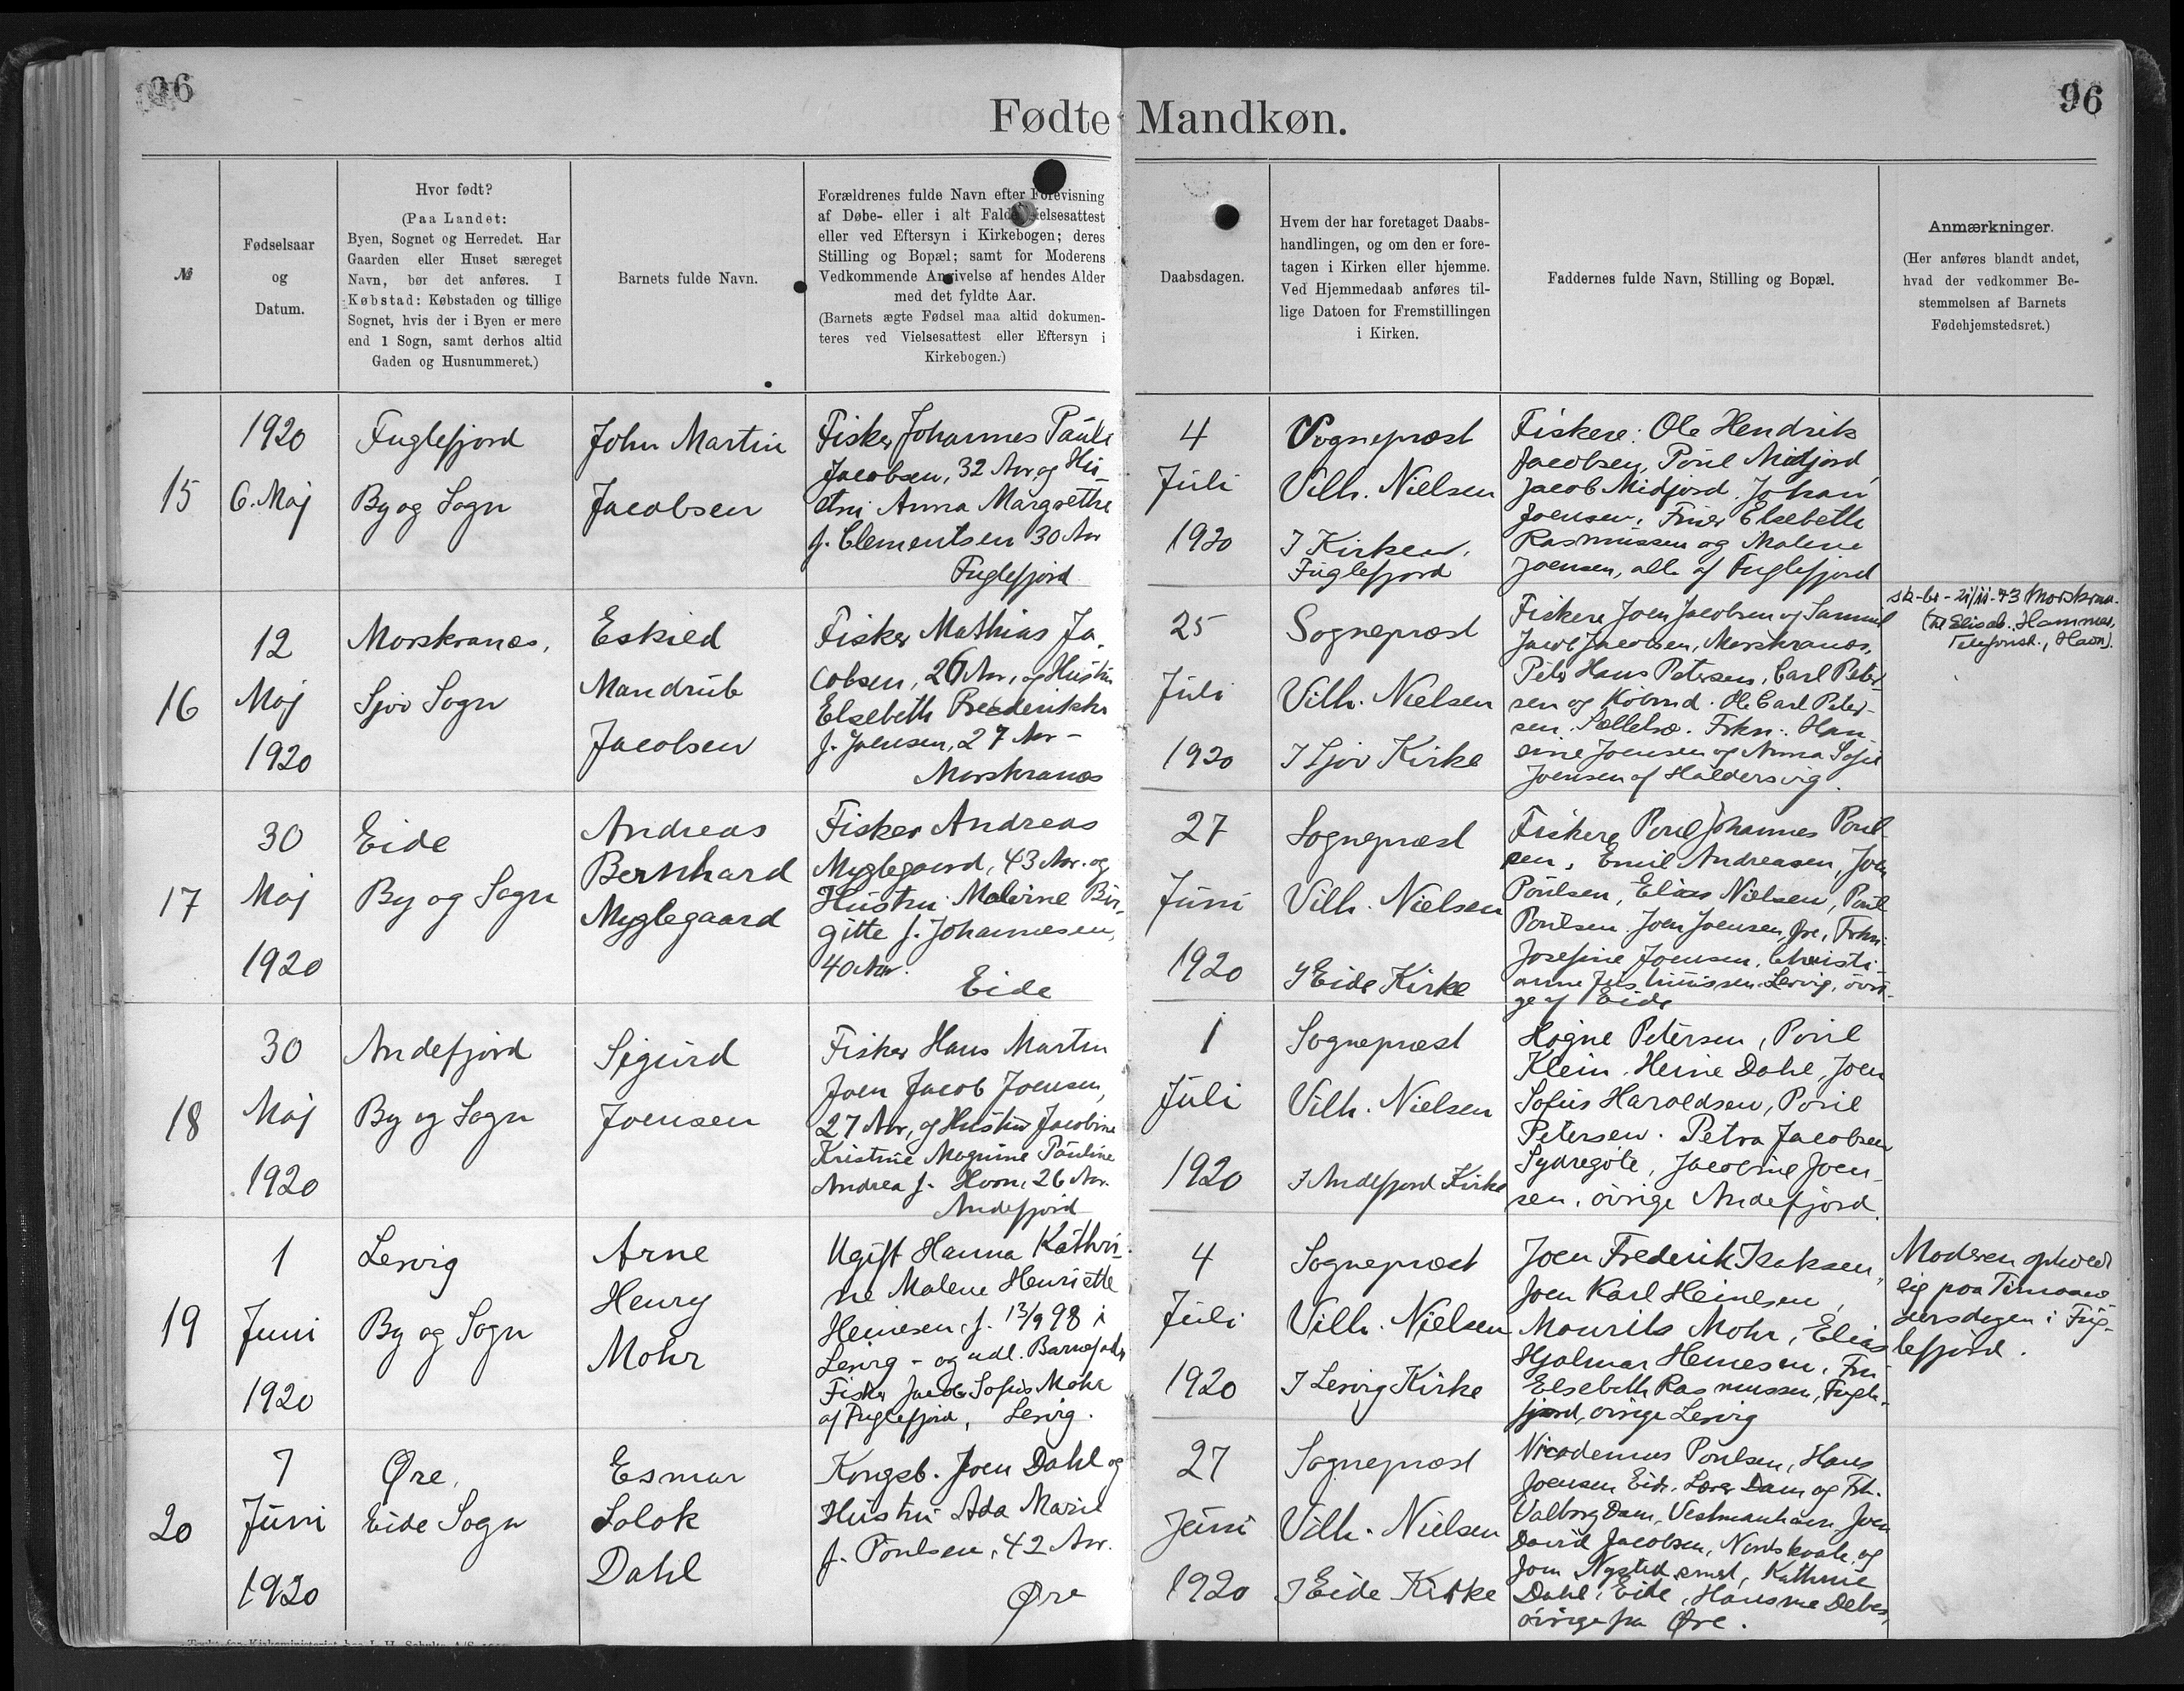 96
96
Fødte Mandkøn.
№
Fødselsaar
og
Datum.
Hvor født?
(Paa Landet:
Byen, Sognet og Herredet. Har
Gaarden eller Huset særeget
Navn, bør det anføres. I
Købstad: Købstaden og tillige
Sognet, hvis der i Byen er mere
end 1 Sogn, samt derhos altid
Gaden og Husnummeret.)
Barnets fulde Navn.
Forældrenes fulde Navn efter Forevisning
af Døbe- eller i alt Fald Vielsesattest
eller ved Eftersyn i Kirkebogen; deres
Stilling og Bopæl; samt for Moderens
Vedkommende Angivelse af hendes Alder
med det fyldte Aar.
(Barnets ægte Fødsel maa altid dokumen-
teres ved Vielsesattest eller Eftersyn i
Kirkebogen.)
Daabsdagen.
Hvem der har foretaget Daabs-
handlingen, og om den er fore-
tagen i Kirken eller hjemme.
Ved Hjemmedaab anføres til-
lige Datoen for Fremstillingen
i Kirken.
Faddernes fulde Navn, Stilling og Bopæl.
Anmærkninger.
(Her anføres blandt andet,
hvad der vedkommer Be-
stemmelsen af Barnets
Fødehjemstedsret.)
15
1920
6. Maj
Fuglefjord
By og Sogn
John Martin
Jacobsen
Fisker Johannes Pauli
Jacobsen, 32 Aar, og Hu-
stru Anna Margrethe
f. Clementsen 30 Aar
Fuglefjord
4
Juli
1920
Sognepræst
Vilh. Nielsen
I Kirken,
Fuglefjord
Fiskere: Ole Hendrik
Jacobsen, Poul Midjord,
Jacob Midjord, Johan
Joensen, Fruer Elsebeth
Rasmussen og Malene
Joensen, alle af Fuglefjord
16
12
Maj
1920
Morskranæs,
Sjov Sogn
Eskild
Mandrub
Jacobsen
Fisker Mathias Ja-
cobsen, 26 Aar, og Hustru
Elsebeth Frederikke
f. Joensen, 27 Aar -
Morskranæs
25
Juli
1920
Sognepræst
Vilh. Nielsen
I Sjov Kirke
Fiskere Joen Jacobsen og Samuel
Jacob Jacobsen, Morskranæs,
Peter Hans Petersen, Carl Peter-
sen og Købmd. Ole Carl Peter-
sen, Selletræ. Frkn: Han-
sine Joensen og Anna Sofie
Joensen af Haldersvig.
Morskran.
Elisab. Hammer,
17
30
Maj
1920
Eide
By og Sogn
Andreas
Bernhard
Myglegaard
Fisker Andreas
Myglegaard, 43 Aar. og
Hustru Malvine Bir-
gitte f. Johannesen,
40 Aar.
Eide
27
Juni
1920
Sognepræst
Vilh. Nielsen
I Eide Kirke
Fiskere Poul Johannes Poul-
sen, Emil Andreasen, Joen
Poulsen, Elias Nielsen, Poul
Poulsen, Joen Joensen, Øre, Frkn:
Josefine Joensen, Christi-
Lervig, øvri-
ge af Eide
18
30
Maj
1920
Andefjord
By og Sogn
Sigurd
Joensen
Fisker Hans Martin
Joen Jacob Joensen,
27 Aar, og Hustru Jacobine
Kristine Magnine Pauline
Andrea f. Horn, 26 Aar.
Andefjord
1
Juli
1920
Sognepræst
Vilh. Nielsen
I Andefjord Kirke
Høgne Petersen, Poul
Klein, Heine Dahl, Joen
Sofus Haraldsen, Poul
Petersen. Petra Jacobsen
Sydregøte, Jacobine Joen-
sen, øvrige Andefjord.
19
1
Juni
1920
Lervig
By og Sogn
Arne
Henry
Mohr
Ugift Hanna Kathri-
ne Malene Henriette
Heinesen, f. 13/9 98 i
Lervig - og udl. Barnefader
Fisker Jacob Sofus Mohr
af Fuglefjord, Lervig.
4
Juli
1920
Sognepræst
Vilh. Nielsen
I Lervig Kirke
Joen Frederik Isaksen,
Joen Karl Heinesen,
Maurits Mohr, Elias
Hjalmar Heinesen, Fru
Elsebeth Rasmussen, Fugle-
fjord, øvrige Lervig
Moderen opholdt
sig paa Timaane-
dersdagen i Fug-
lefjord.
20
7
Juni
1920
Øre,
Eide Sogn
Esmar
Solok
Dahl
Kongsb. Joen Dahl og
Hustru Ada Marie
f. Poulsen, 42 Aar.
Øre
27
Juni
1920
Sognepræst
Vilh. Nielsen
I Eide Kirke
Nicodemus Poulsen, Hans
Joensen Eide, Lærer Dam og Frk.
Valborg Dam, Vestmanhavn, Joen
David Jacobsen, Nordskaale, og
Joen Nysted smst, Kathrine
Dahl, Eide, Hansine Debes,
øvrige fra Øre.